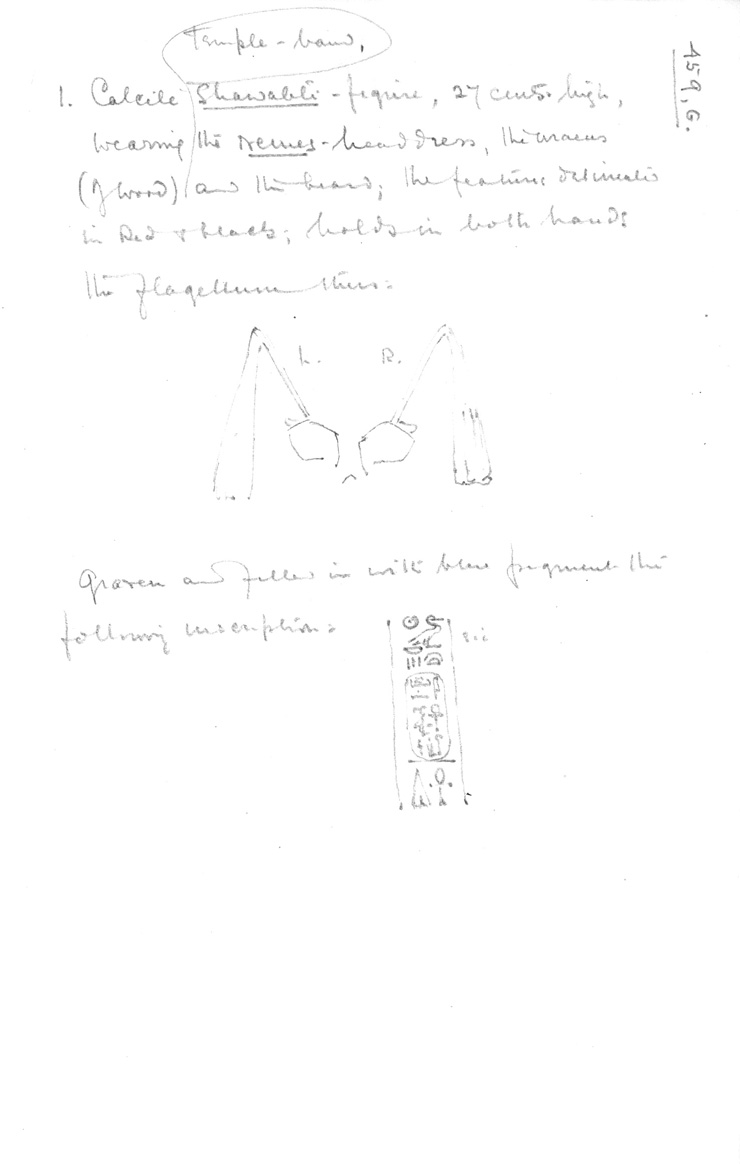 459, G.
Temple-band,
1. Calcite Shawabti-figure, 27 cents. high,
wearing the Nemes-headdress, the uraeus
(of wood) and the beard; the features delineated
in Red & black; holds in both hands
the flagellum thus:
L. R.
Graven and filled in with blue pigment the
following inscription:
sic